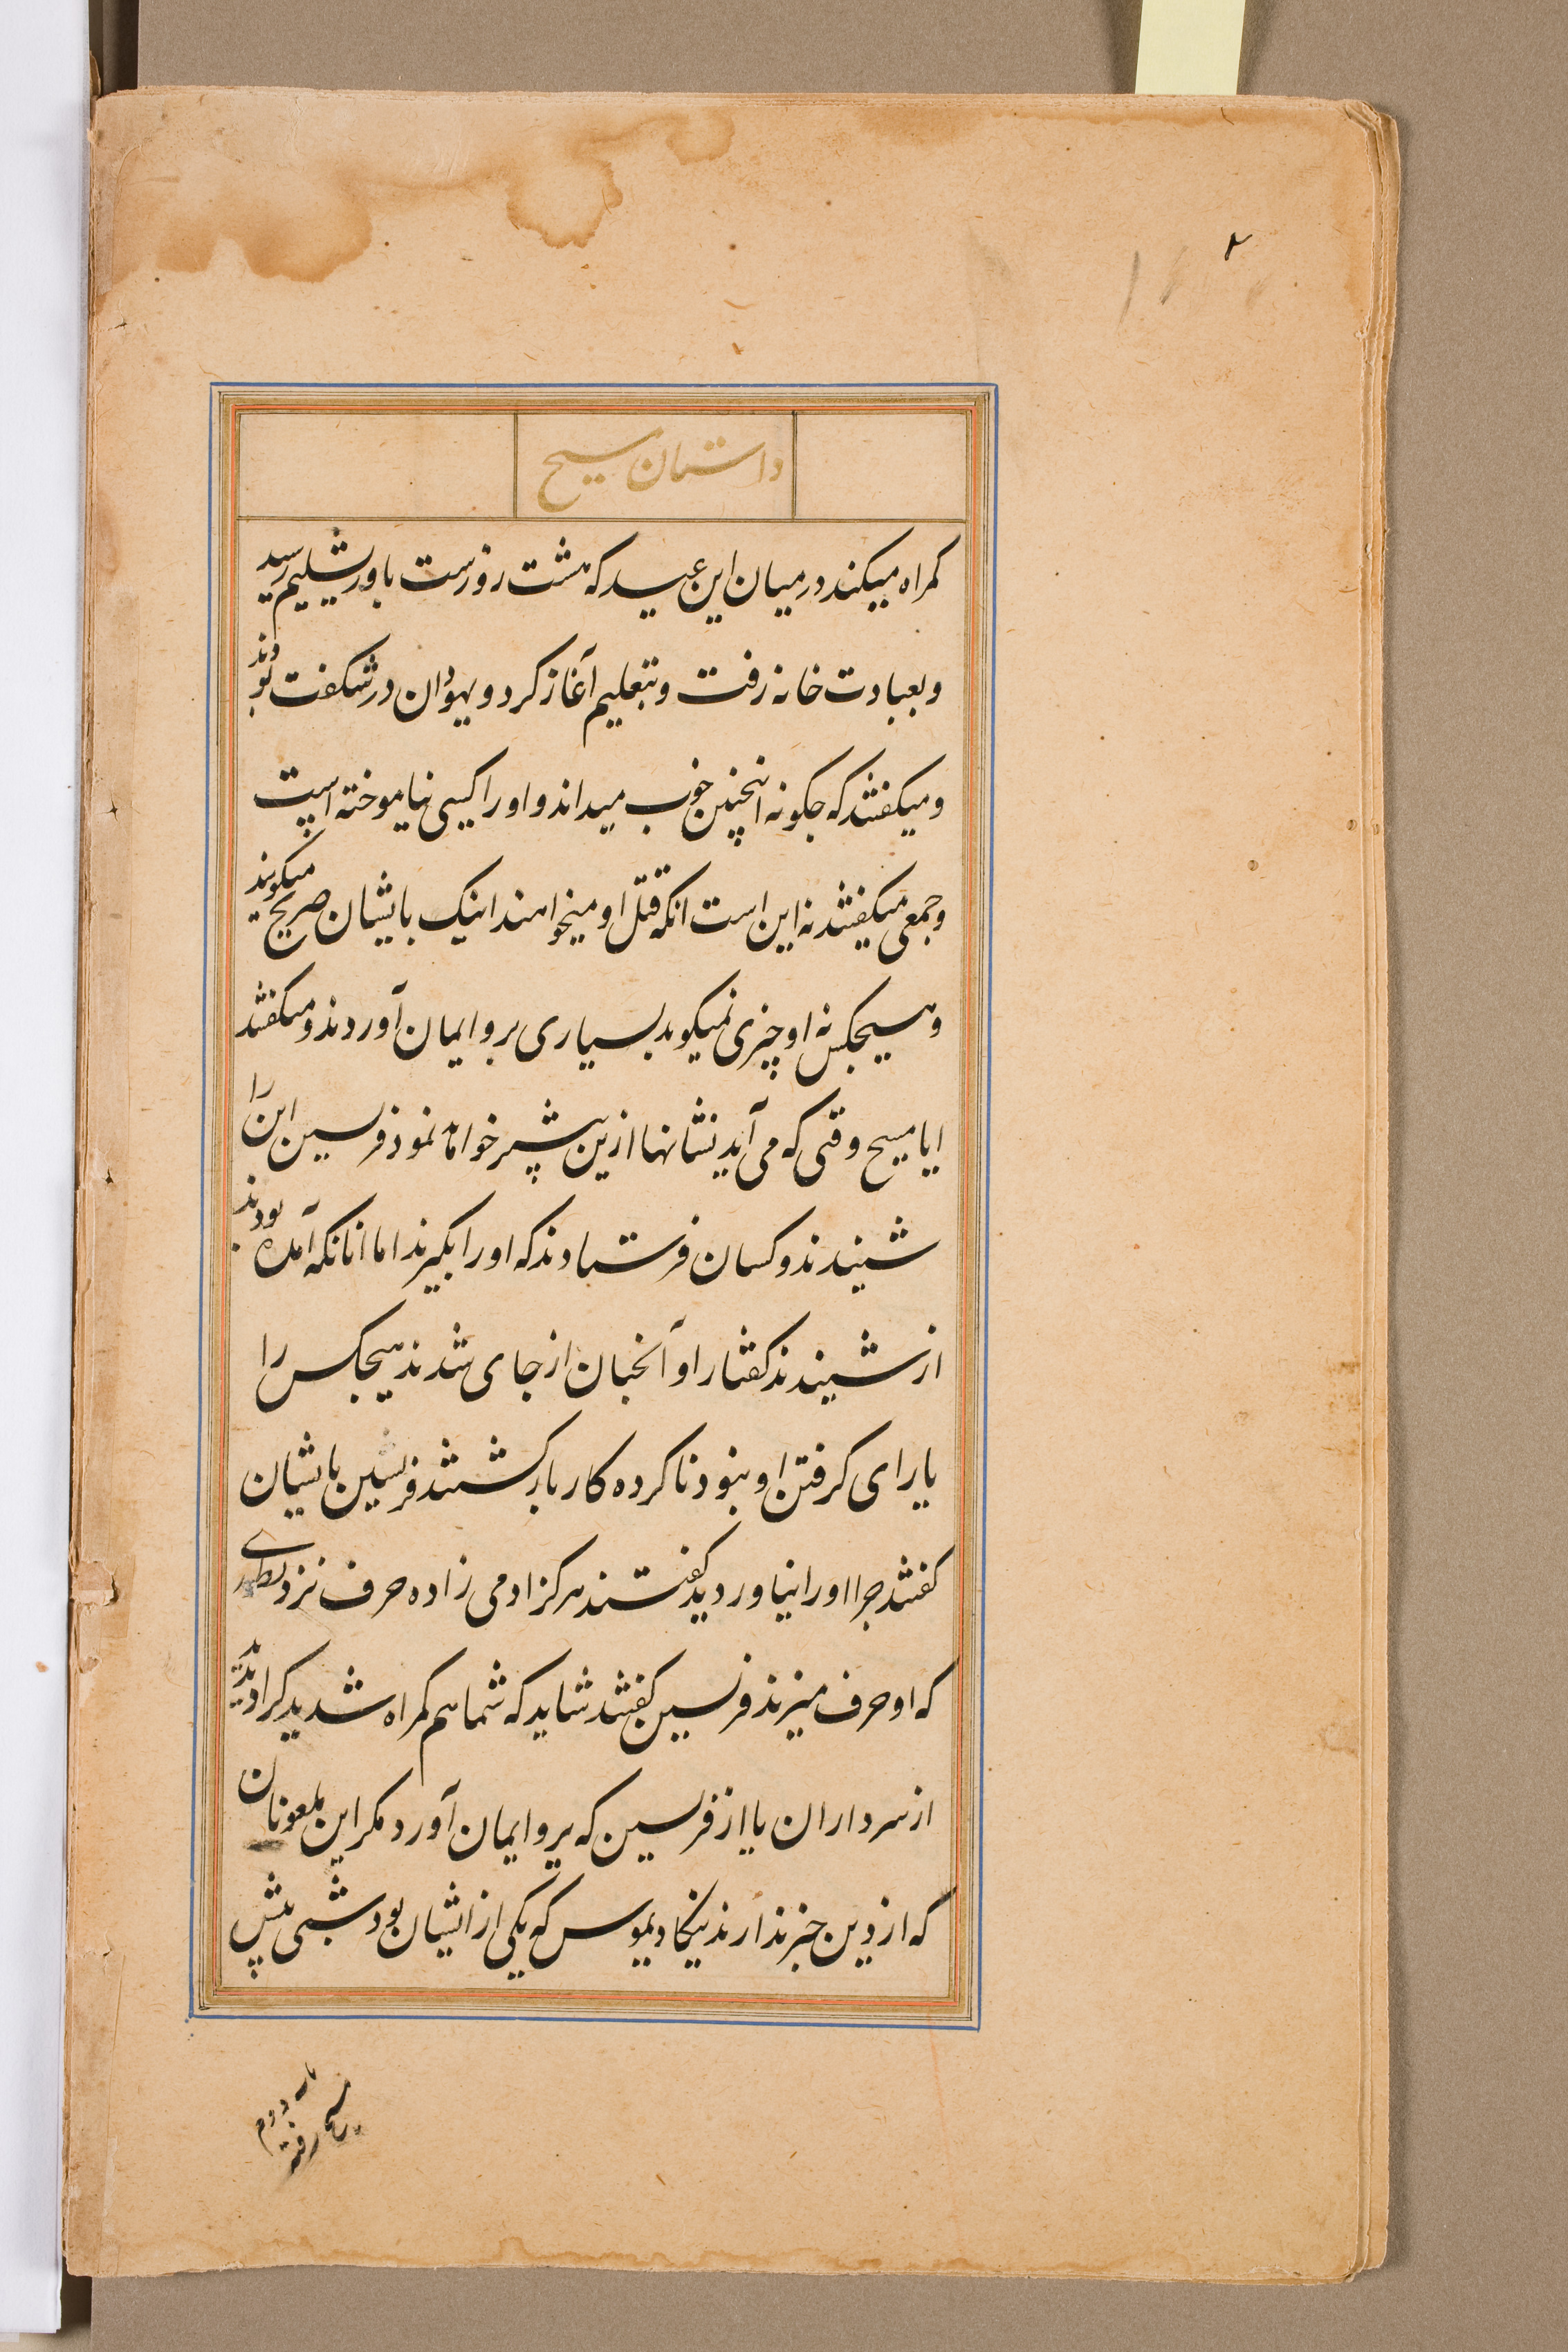 داستان مسیح
کمراه میکند در میان این عید که هشت روزست باورشلیم رسید
و بعبادت خانه رفت و بتعلیم آغاز کرد و یهودان در شکفت بودند
و میکفتند که جکونه اینچنین خوب میداند و او را کسی نیاموخته است
و جمعی میکفتند نه این است انکه قتل او میخواهند اینک بایشان صریح میکوید
و هیچکس به او چیزی نمیکوید بسیاری برو ایمان آوردند و میکفتند
ایا مسیح وقتی که می آید نشانها ازین بیشتر خواهد نمود فرسین این را
شنیدند و کسان فرستادند که اورا بکیرند اما انانکه آمده بودند
از شنیدند کفتار او آنچنان از جای شدند هیچکس را
یارای کرفتن او نبود ناکرده کار باز کشتند فرسین بایشان
کفتند چرا اورا نیاوردید کفتند هرکز ادمی زاده حرف نزد بطوری
که او حرف میزند فرسین کفتند شاید که شما هم کمراه شدید کرا دیدید
از سرداران یا از فرسین که برو ایمان آورد مکر این ملعونان
که از دین خبر ندارند نیکادیموس که یکی از ایشان بود شبی پیش
مسیح رفته